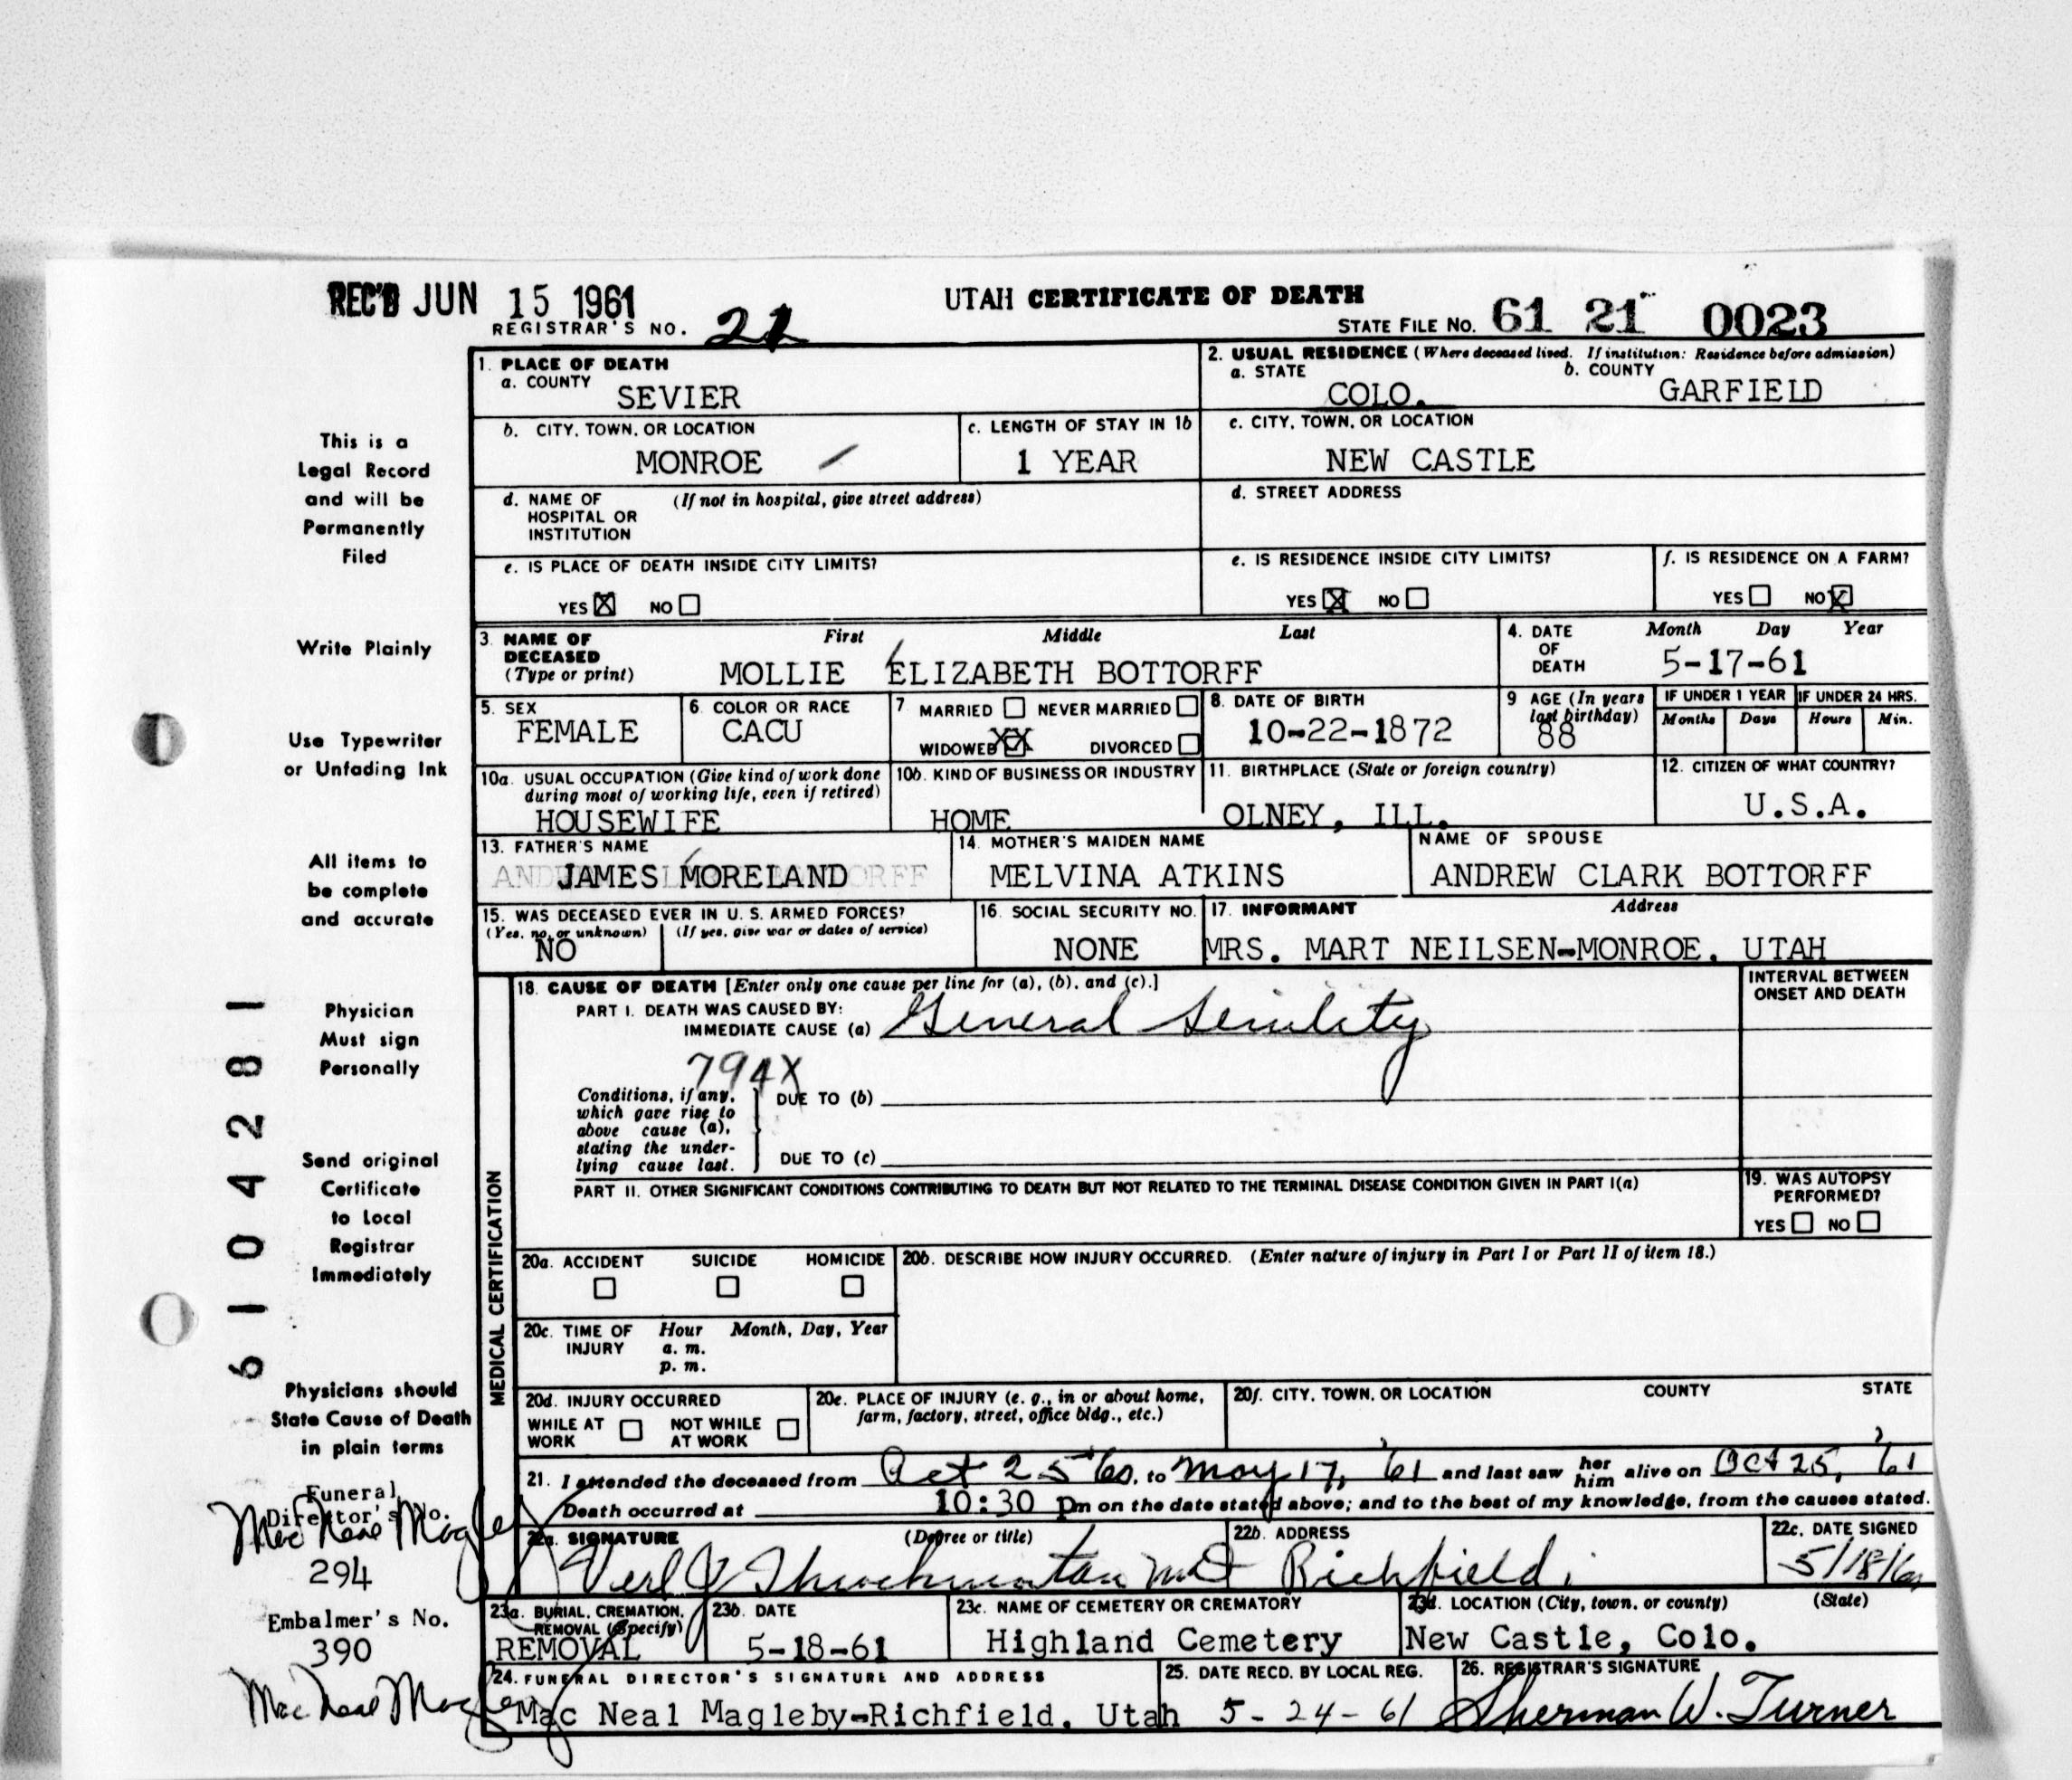 REC'D JUN 15 1961
UTAH CERTIFICATE OF DEATH
REGISTRAR'S NO. 21
STATE FILE NO. 61 21 0023
1. PLACE OF DEATH
a. COUNTY
SEVIER
2. USUAL RESIDENCE (Where deceased lived. If institution: Residence before admission)
a. STATE
COLO.
b. COUNTY
GARFIELD
b. CITY, TOWN, OR LOCATION
MONROE
c. LENGTH OF STAY IN 1b
1 YEAR
c. CITY, TOWN, OR LOCATION
NEW CASTLE
d. NAME OF HOSPITAL OR INSTITUTION
(If not in hospital, give street address)
d. STREET ADDRESS
e. IS PLACE OF DEATH INSIDE CITY LIMITS?
YES X NO
e. IS RESIDENCE INSIDE CITY LIMITS?
YES X NO
f. IS RESIDENCE ON A FARM?
YES NO X
3. NAME OF DECEASED
(Type or print)
First Middle Last
MOLLIE ELIZABETH BOTTORFF
4. DATE OF DEATH
Month Day Year
5-17-61
5. SEX
FEMALE
6. COLOR OR RACE
CACU
7. MARRIED NEVER MARRIED
WIDOWED XX DIVORCED
8. DATE OF BIRTH
10-22-1872
9 AGE (In years last birthday)
88
IF UNDER 1 YEAR
Months Days
IF UNDER 24 HRS.
Hours Min.
10a. USUAL OCCUPATION (Give kind of work done during most of working life, even if retired)
HOUSEWIFE
10b. KIND OF BUSINESS OR INDUSTRY
HOME
11. BIRTHPLACE (State or foreign country)
OLNEY, ILL.
12. CITIZEN OF WHAT COUNTRY?
U.S.A.
13. FATHER'S NAME
JAMES MORELAND
14. MOTHER'S MAIDEN NAME
MELVINA ATKINS
NAME OF SPOUSE
ANDREW CLARK BOTTORFF
15. WAS DECEASED EVER IN U. S. ARMED FORCES?
(Yes, no, or unknown) (If yes, give war or dates of service)
NO
16. SOCIAL SECURITY NO.
NONE
17. INFORMANT Address
MRS. MART NEILSEN-MONROE, UTAH
MEDICAL CERTIFICATION
18. CAUSE OF DEATH [Enter only one cause per line for (a), (b), and (c).]
PART I. DEATH WAS CAUSED BY:
IMMEDIATE CAUSE (a) General Senility
794X
INTERVAL BETWEEN ONSET AND DEATH
Conditions, if any, which gave rise to above cause (a), stating the underlying cause last.
DUE TO (b)
DUE TO (c)
PART II. OTHER SIGNIFICANT CONDITIONS CONTRIBUTING TO DEATH BUT NOT RELATED TO THE TERMINAL DISEASE CONDITION GIVEN IN PART I(a)
19. WAS AUTOPSY PERFORMED?
YES NO
20a. ACCIDENT SUICIDE HOMICIDE
20b. DESCRIBE HOW INJURY OCCURRED. (Enter nature of injury in Part I or Part II of item 18.)
20c. TIME OF INJURY
Hour Month, Day, Year
a. m.
p. m.
20d. INJURY OCCURRED
WHILE AT WORK NOT WHILE AT WORK
20e. PLACE OF INJURY (e. g., in or about home, farm, factory, street, office bldg., etc.)
20f. CITY, TOWN, OR LOCATION COUNTY STATE
21. I attended the deceased from Oct 25 '60, to May 17, '61 and last saw her him alive on Oct 25, '61
Death occurred at 10:30 pm on the date stated above; and to the best of my knowledge, from the causes stated.
22a. SIGNATURE (Degree or title)
22b. ADDRESS
Richfield
22c. DATE SIGNED
5/18/61
23a. BURIAL, CREMATION, REMOVAL (Specify)
REMOVAL
23b. DATE
5-18-61
23c. NAME OF CEMETERY OR CREMATORY
Highland Cemetery
23d. LOCATION (City, town, or county) (State)
New Castle, Colo.
24. FUNERAL DIRECTOR'S SIGNATURE AND ADDRESS
Mac Neal Magleby-Richfield, Utah
25. DATE RECD. BY LOCAL REG.
5-24-61
26. REGISTRAR'S SIGNATURE
Sherman W. Turner
This is a
Legal Record
and will be
Permanently
Filed
Write Plainly
Use Typewriter
or Unfading Ink
All items to
be complete
and accurate
Physician
Must sign
Personally
Send original
Certificate
to Local
Registrar
Immediately
Physicians should
State Cause of Death
in plain terms
Funeral
Director's No.
Mac Neal Magleby
294
Embalmer's No.
390
Mac Neal Magleby
6104281